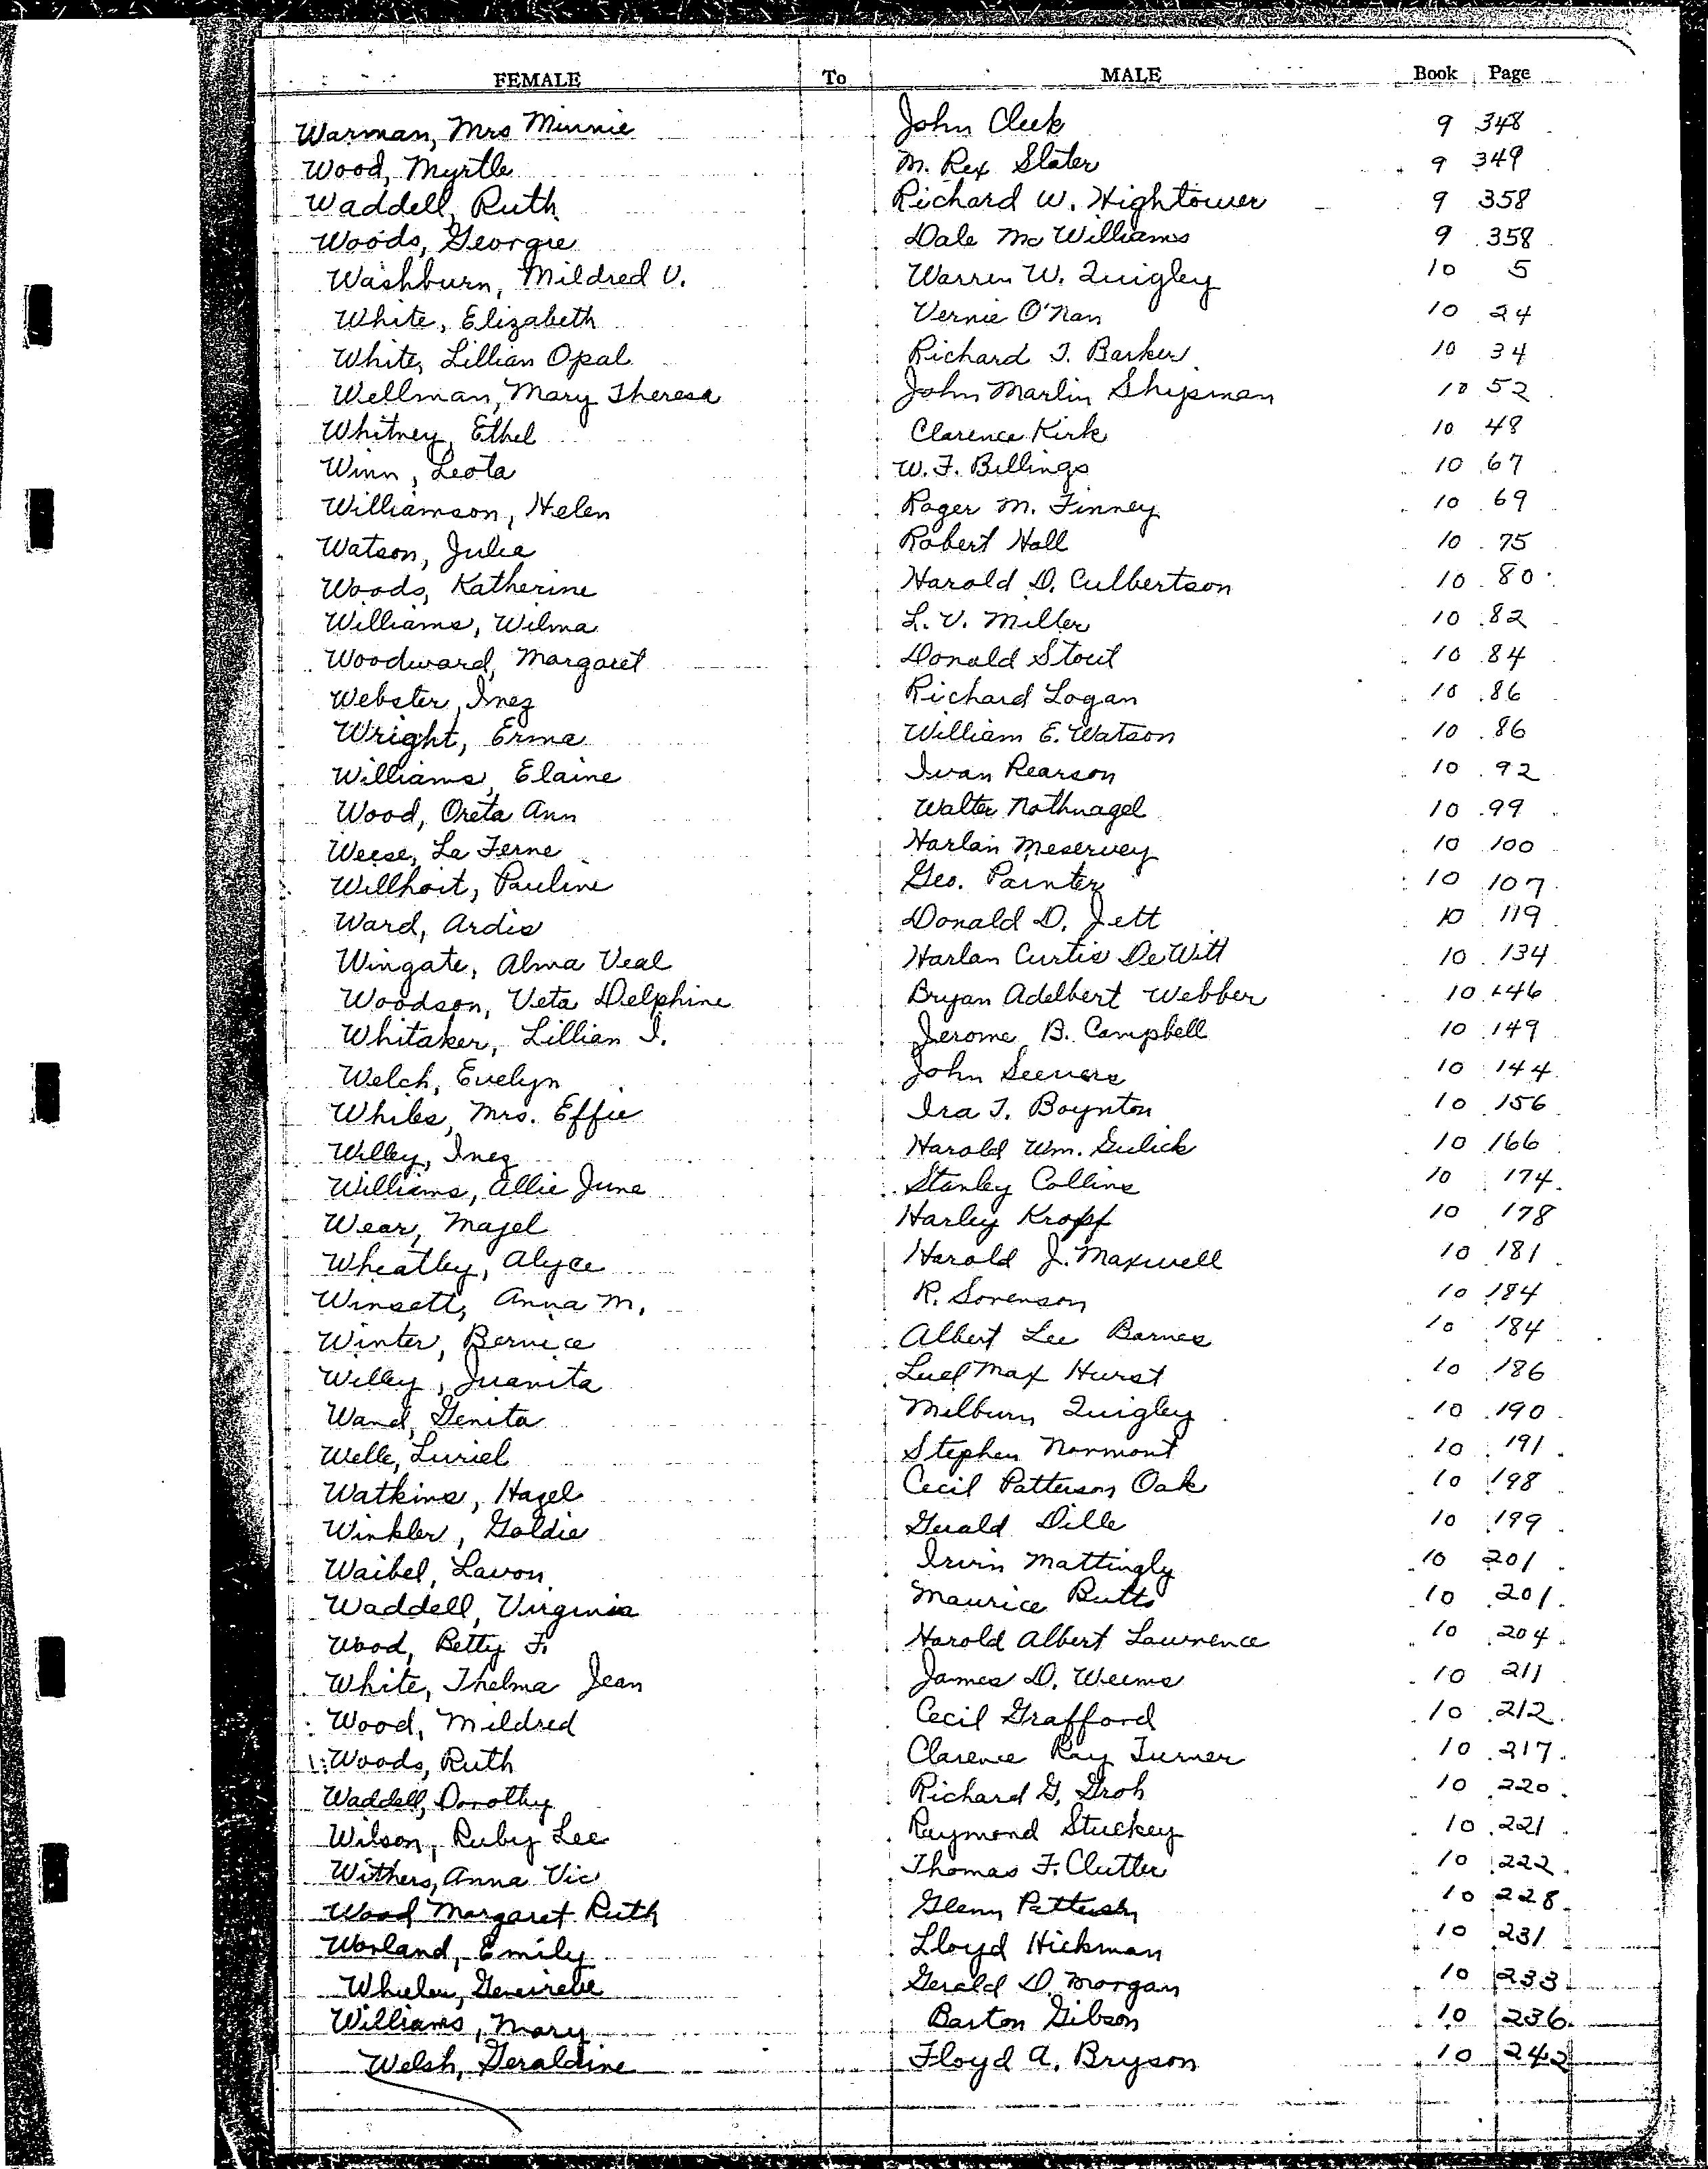 FEMALE To MALE Book Page
Warman, Mrs Minnie John Cleek 9 348
Wood, Myrtle M. Rex Slater 9 349
Waddell, Ruth Richard W. Hightower 9 358
Woods, Georgie Dale McWilliams 9 358
Washburn, Mildred V. Warren W. Quigley 10 5
White, Elizabeth Vernie O'Nan 10 24
White, Lillian Opal Richard T. Barker 10 34
Wellman, Mary Theresa John Marlin Shipman 10 52
Whitney, Ethel Clarence Kirk 10 48
Winn, Leota W. F. Billings 10 67
Williamson, Helen Roger M. Finney 10 69
Watson, Julia Robert Hall 10 75
Woods, Katherine Harold D. Culbertson 10 80
Williams, Wilma L. V. Miller 10 82
Woodward, Margaret Donald Stout 10 84
Webster, Inez Richard Logan 10 86
Wright, Erma William E. Watson 10 86
Williams, Elaine Ivan Pearson 10 92
Wood, Oreta Ann Walter Nothnagel 10 99
Weese, La Ferne Harlan Meservey 10 100
Willhoit, Pauline Geo. Painter 10 107
Ward, Ardis Donald D. Jett 10 119
Wingate, Alma Veal Harlan Curtis DeWitt 10 134
Woodson, Veta Delphine Bryan Adelbert Webber 10 146
Whitaker, Lillian I. Jerome B. Campbell 10 149
Welch, Evelyn John Seevers 10 144
Whiles, Mrs. Effie Ira T. Boynton 10 156
Willey, Inez Harold Wm. Gulick 10 166
Williams, Allie June Stanley Collins 10 174
Wear, Majel Harley Kropf 10 178
Wheatley, Alyce Harold J. Maxwell 10 181
Winsett, Anna M. R. Sorenson 10 184
Winter, Bernice Albert Lee Barnes 10 184
Willey, Juanita Luel Max Hurst 10 186
Wand, Genita Milburn Quigley 10 190
Wells, Luriel Stephen Normont 10 191
Watkins, Hazel Cecil Patterson Oak 10 198
Winkler, Goldie Gerald Dille 10 199
Waibel, Lavon Irvin Mattingly 10 201
Waddell, Virginia Maurice Butts 10 201
Wood, Betty F. Harold Albert Lawrence 10 204
White, Thelma Jean James D. Weems 10 211
Wood, Mildred Cecil Grafford 10 212
Woods, Ruth Clarence Ray Turner 10 217
Waddell, Dorothy Richard G. Groh 10 220
Wilson, Ruby Lee Raymond Stuckey 10 221
Withers, Anna Vic Thomas F. Clutter 10 222
Wood Margaret Ruth Glenn 10 228
Worland, Emily Lloyd Hickman 10 231
Wheeler, Genevieve Gerald D. Morgan 10 233
Williams, Mary Barton Gibson 10 236
Welsh, Geraldine Floyd A. Bryson 10 242